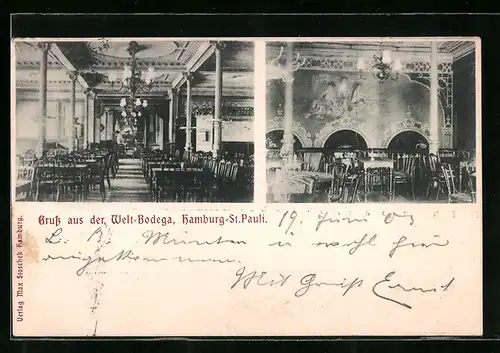 Gruß aus der Welt-Bodega, Hamburg-St.Pauli.
19. Juni 03
L. R. u. wohl hier
Mit Gruß Ernst
Verlag Max Stoschek Hamburg.